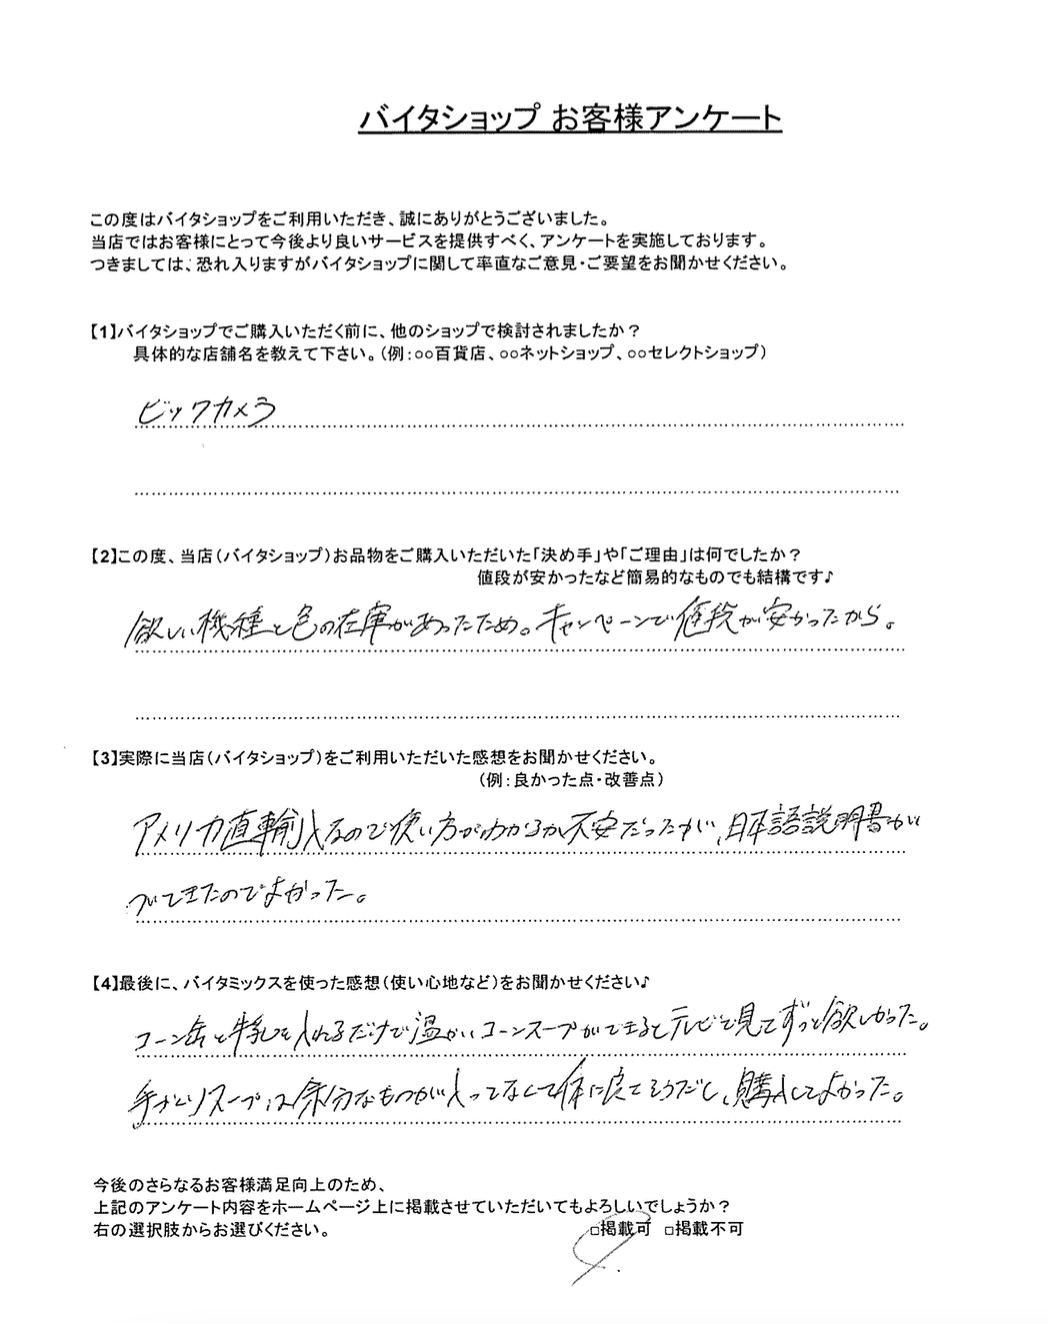 バイタショップ お客様アンケート
この度はバイタショップをご利用いただき、誠にありがとうございました。
当店ではお客様にとって今後より良いサービスを提供すべく、アンケートを実施しております。
つきましては、恐れ入りますがバイタショップに関して率直なご意見・ご要望をお聞かせください。
【1】バイタショップでご購入いただく前に、他のショップで検討されましたか？
具体的な店舗名を教えて下さい。（例：○○百貨店、○○ネットショップ、○○セレクトショップ）
ビックカメラ
【2】この度、当店（バイタショップ）お品物をご購入いただいた「決め手」や「ご理由」は何でしたか？
値段が安かったなど簡易的なものでも結構です♪
欲しい機種と色の在庫があったため。キャンペーンで値段が安かったから。
【3】実際に当店（バイタショップ）をご利用いただいた感想をお聞かせください。
（例：良かった点・改善点）
アメリカ直輸入なので使い方がわかるか不安だったが、日本語説明書が
ついてきたのでよかった。
【4】最後に、バイタミックスを使った感想（使い心地など）をお聞かせください♪
コーン缶と牛乳を入れるだけで温かいコーンスープができるとテレビで見てずっと欲しかった。
手作りスープは余分なものが入ってなくて体に良さそうだし、購入してよかった。
今後のさらなるお客様満足向上のため、
上記のアンケート内容をホームページ上に掲載させていただいてもよろしいでしょうか？
右の選択肢からお選びください。 □掲載可 □掲載不可